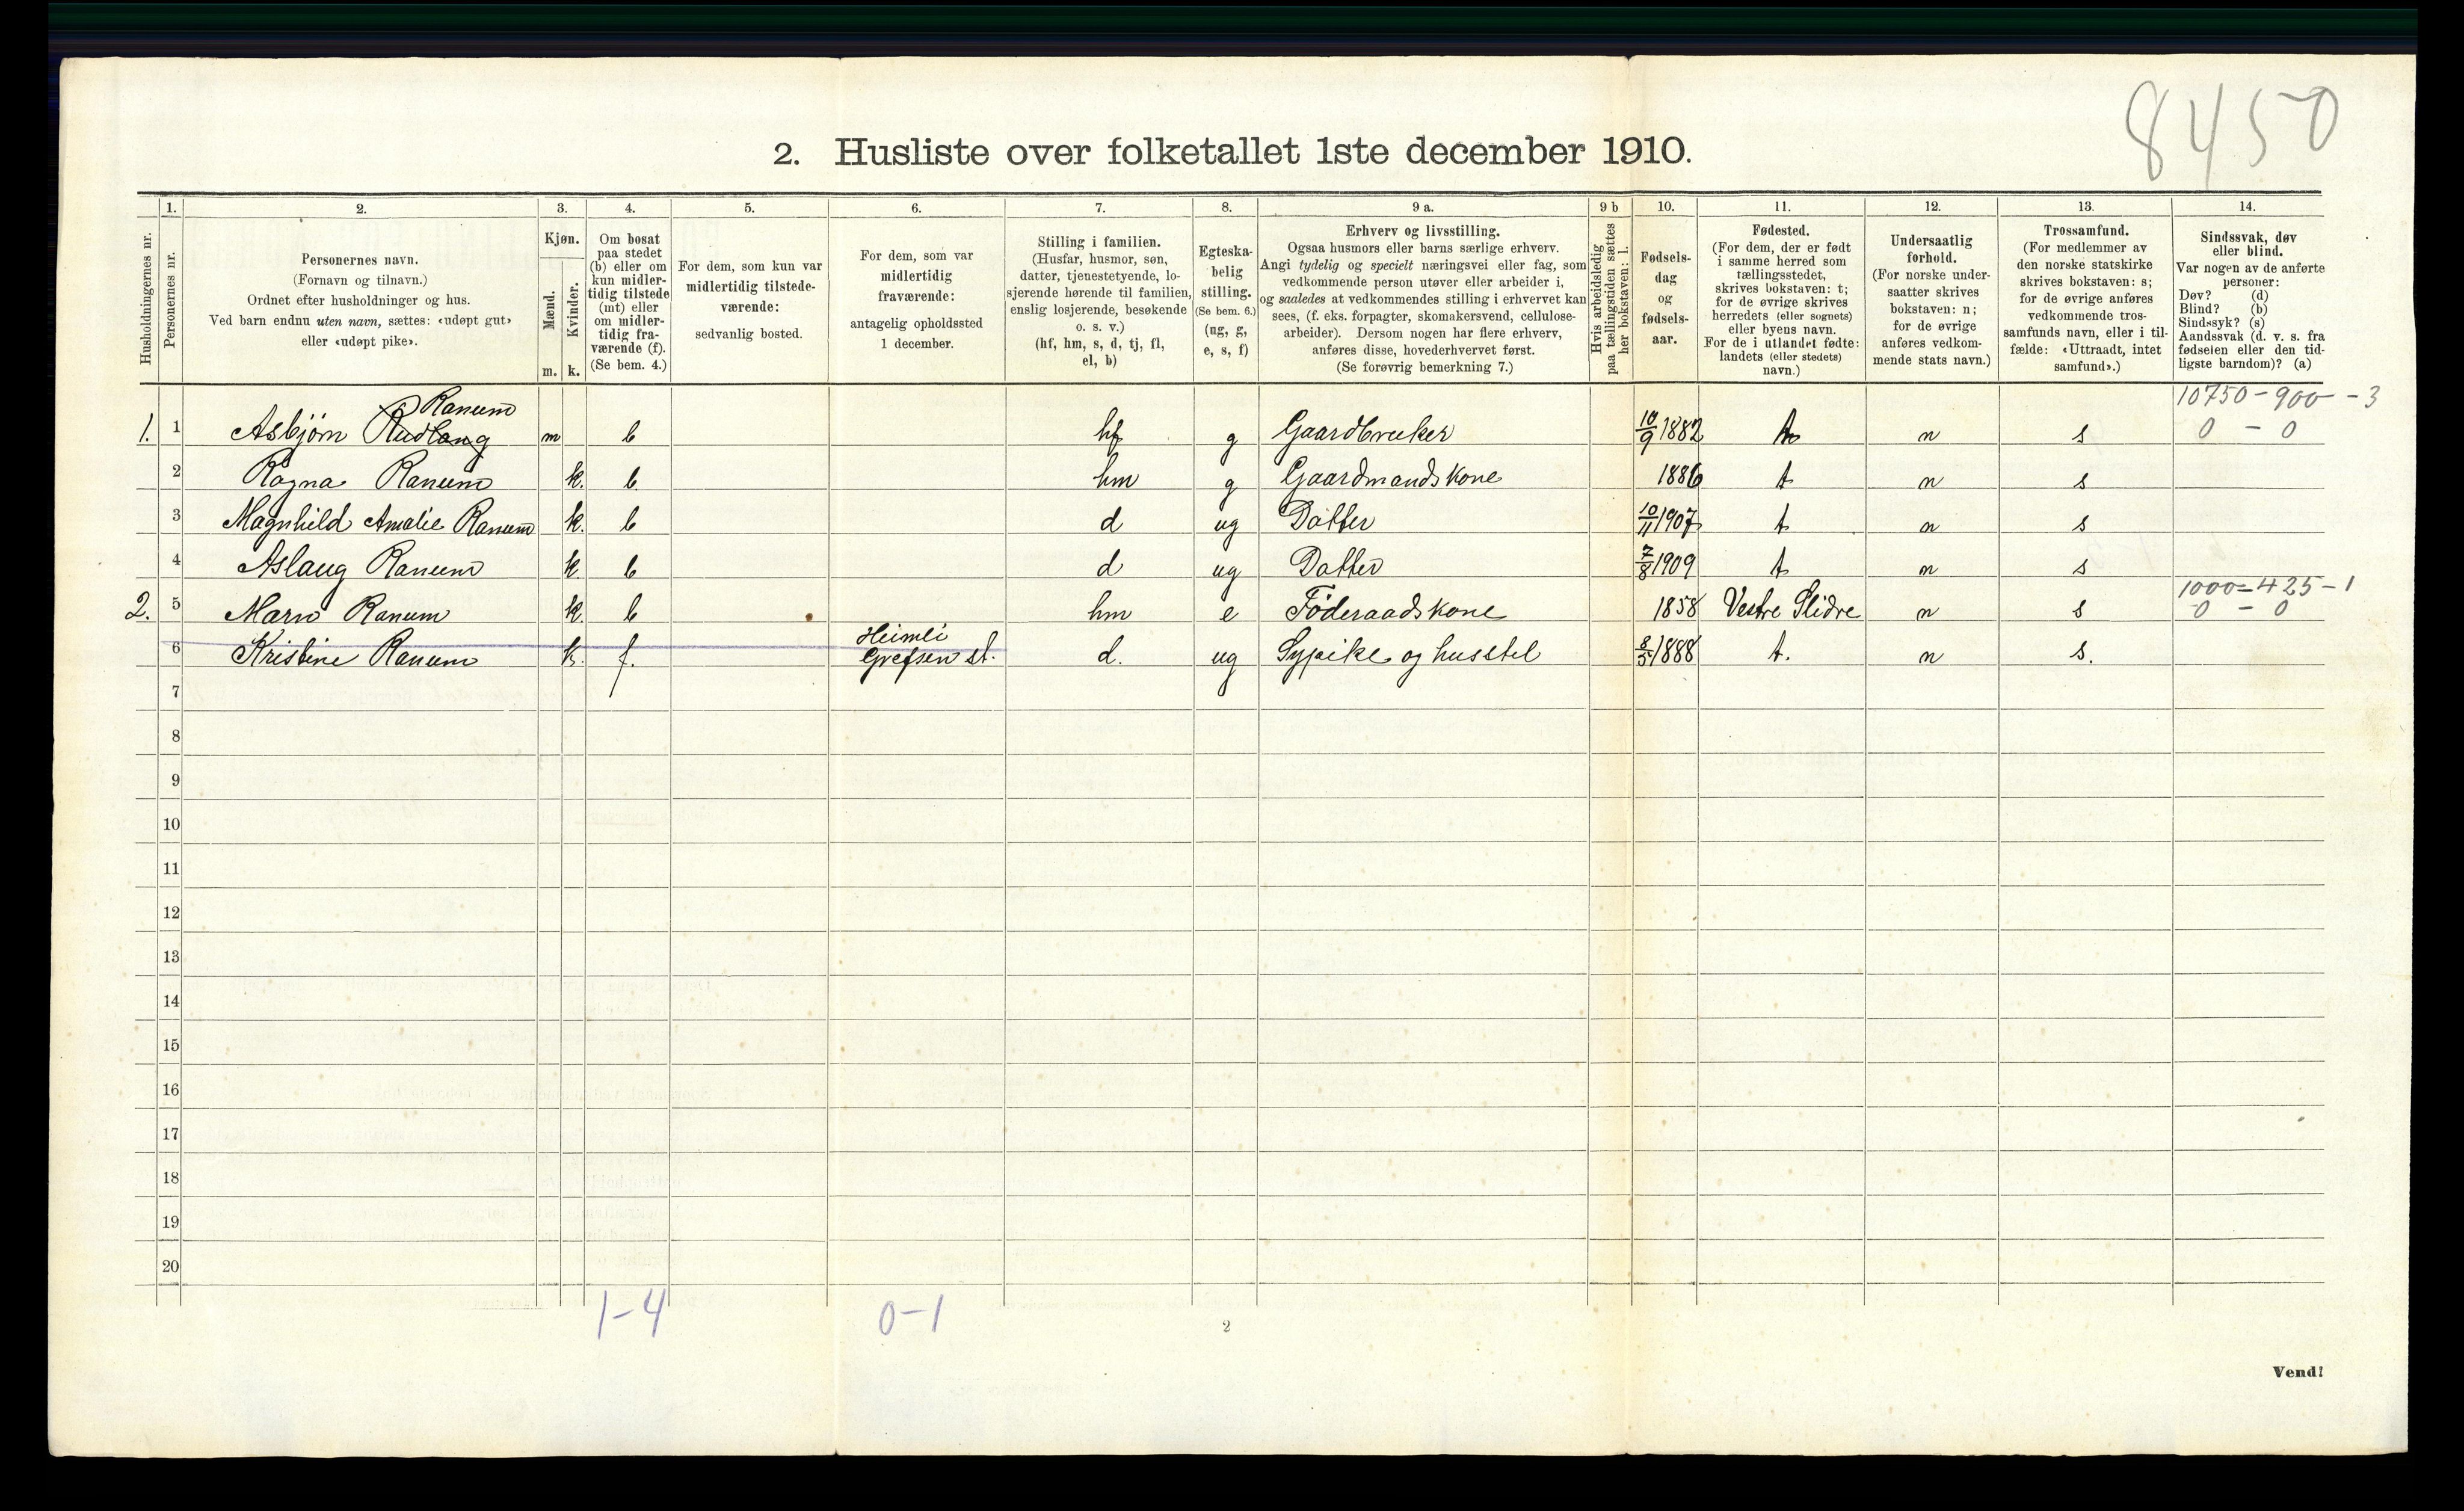 8450
2. Husliste over folketallet 1ste december 1910.
Husholdningernes nr.
1.
Personernes nr.
2.
Personernes navn.
(Fornavn og tilnavn.)
Ordnet efter husholdninger og hus.
Ved barn endnu uten navn, sættes: «udøpt gut»
eller «udøpt pike».
3.
Kjøn.
Mænd.
Kvinder.
m. k.
4.
Om bosat
paa stedet
(b) eller om
kun midler-
tidig tilstede
(mt) eller
om midler-
tidig fra-
værende (f).
(Se bem. 4.)
5.
For dem, som kun var
midlertidig tilstede-
værende:
sedvanlig bosted.
6.
For dem, som var
midlertidig
fraværende:
antagelig opholdssted
1 december.
7.
Stilling i familien.
(Husfar, husmor, søn,
datter, tjenestetyende, lo-
sjerende hørende til familien,
enslig losjerende, besøkende
o. s. v.)
(hf, hm, s, d, tj, fl,
el, b)
8.
Egteska-
belig
stilling.
(Se bem. 6.)
(ug, g,
e, s, f)
9 a.
Erhverv og livsstilling.
Ogsaa husmors eller barns særlige erhverv.
Angi tydelig og specielt næringsvei eller fag, som
vedkommende person utøver eller arbeider i,
og saaledes at vedkommendes stilling i erhvervet kan
sees, (f. eks. forpagter, skomakersvend, cellulose-
arbeider). Dersom nogen har flere erhverv,
anføres disse, hovederhvervet først.
(Se forøvrig bemerkning 7.)
9 b
Hvis arbeidsledig
paa tællingstiden sættes
her bokstaven: l.
10.
Fødsels-
dag
og
fødsels-
aar.
11.
Fødested.
(For dem, der er født
i samme herred som
tællingsstedet,
skrives bokstaven: t;
for de øvrige skrives
herredets (eller sognets)
eller byens navn.
For de i utlandet fødte:
landets (eller stedets)
navn.)
12.
Undersaatlig
forhold.
(For norske under-
saatter skrives
bokstaven: n;
for de øvrige
anføres vedkom-
mende stats navn.)
13.
Trossamfund.
(For medlemmer av
den norske statskirke
skrives bokstaven: s;
for de øvrige anføres
vedkommende tros-
samfunds navn, eller i til-
fælde: «Uttraadt, intet
samfund».)
14.
Sindssvak, døv
eller blind.
Var nogen av de anførte
personer:
Døv? (d)
Blind? (b)
Sindssyk? (s)
Aandssvak (d. v. s. fra
fødselen eller den tid-
ligste barndom)? (a)
Ranum 10750 - 900 - 3
1. 1 Asbjørn Rudlang m b hf g Gaardbruker 10/9 1882 t n s 0 - 0
2 Ragna Ranum k. b hm g Gaardmandskone 1886 t n s
3 Magnhild Amalie Ranum k. b d ug Datter 10/11 1907 t n s
4 Aslaug Ranum k. b d ug Datter 7/8 1909 t n s
1000 - 425 - 1
2. 5 Marn Ranum k. b hm e Föderaadskone 1858 Vestre Slidre n s 0 - 0
Heimli
6 Kristine Ranum k. f. Grefsen st. d. ug Sypike og husstel 8/5 1888 t. n s.
7
8
9
10
11
12
13
14
15
16
17
18
19
20
1-4 0-1
2
Vend!